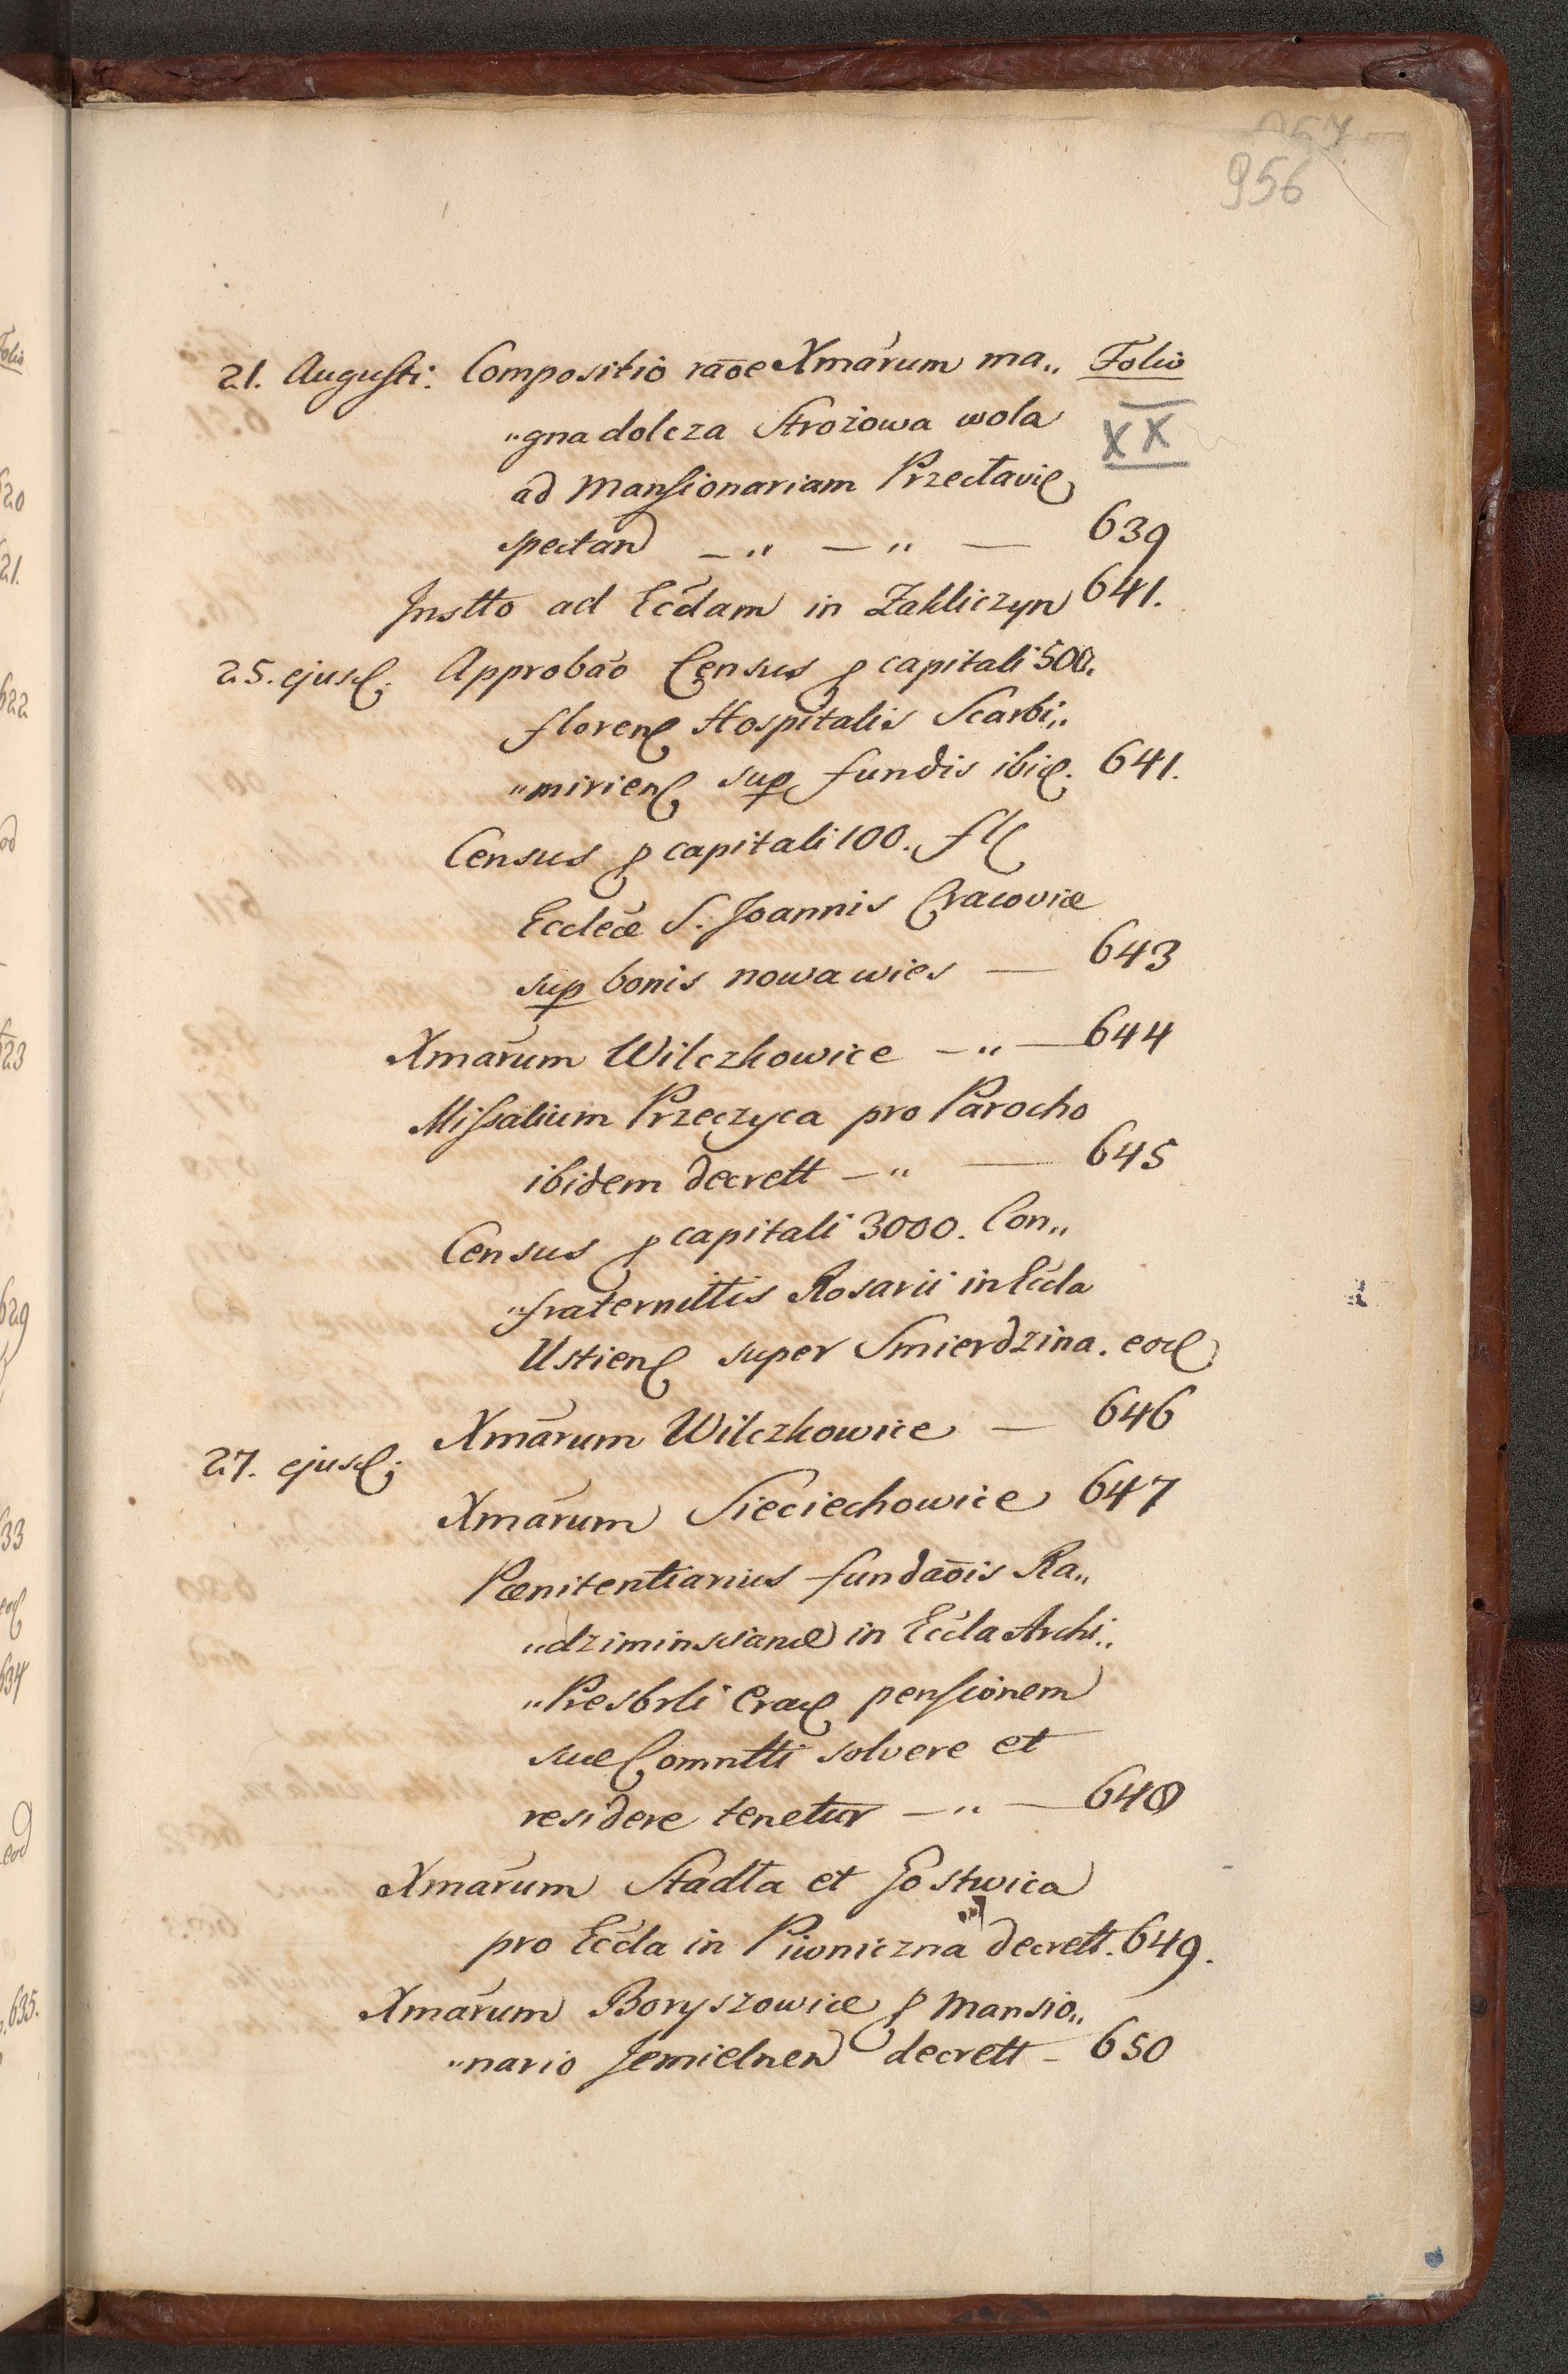 956
21. Augusti. Compositio raõe Xmarum ma„ Folio
„gna dolcza Strozowa wola XX
ad Mansionariam Przecław
spectan — „ — „ — 639
Instto ad Eccłam in Zakliczyn 641.
25. ejusd. Approbão Census p capitali 500.
floren Hospitalis Scarbi„
„mirien sup fundis ibid. 641.
Census p capitali 100. fl
Eccleæ S. Joannis Cracoviæ
sup bonis nowa wies — 643
Xmarum Wilczkowice — „ — 644
Missalium Przeczyca pro Parocho
ibidem decrett — „ — 645
Census p capitali 3000. Con„
„fraternittis Rosarii in Eccla
Ustien super Smierdzina. eod
27. ejusd. Xmarum Wilczkowice — 646
Xmarum Sieciechowice 647
Pœnitentiarius fundaõis Ra„
„dziminscianæ in Eccla Archi„
„Presbrli Crac pensionem
suæ Comntti solvere et
residere tenetur — „ — 648
Xmarum Stadła et Gostwica
pro Eccla in Piwniczna decrett. 649.
Xmarum Boryszowice p Mansio„
„nario Jemielnen decrett — 650